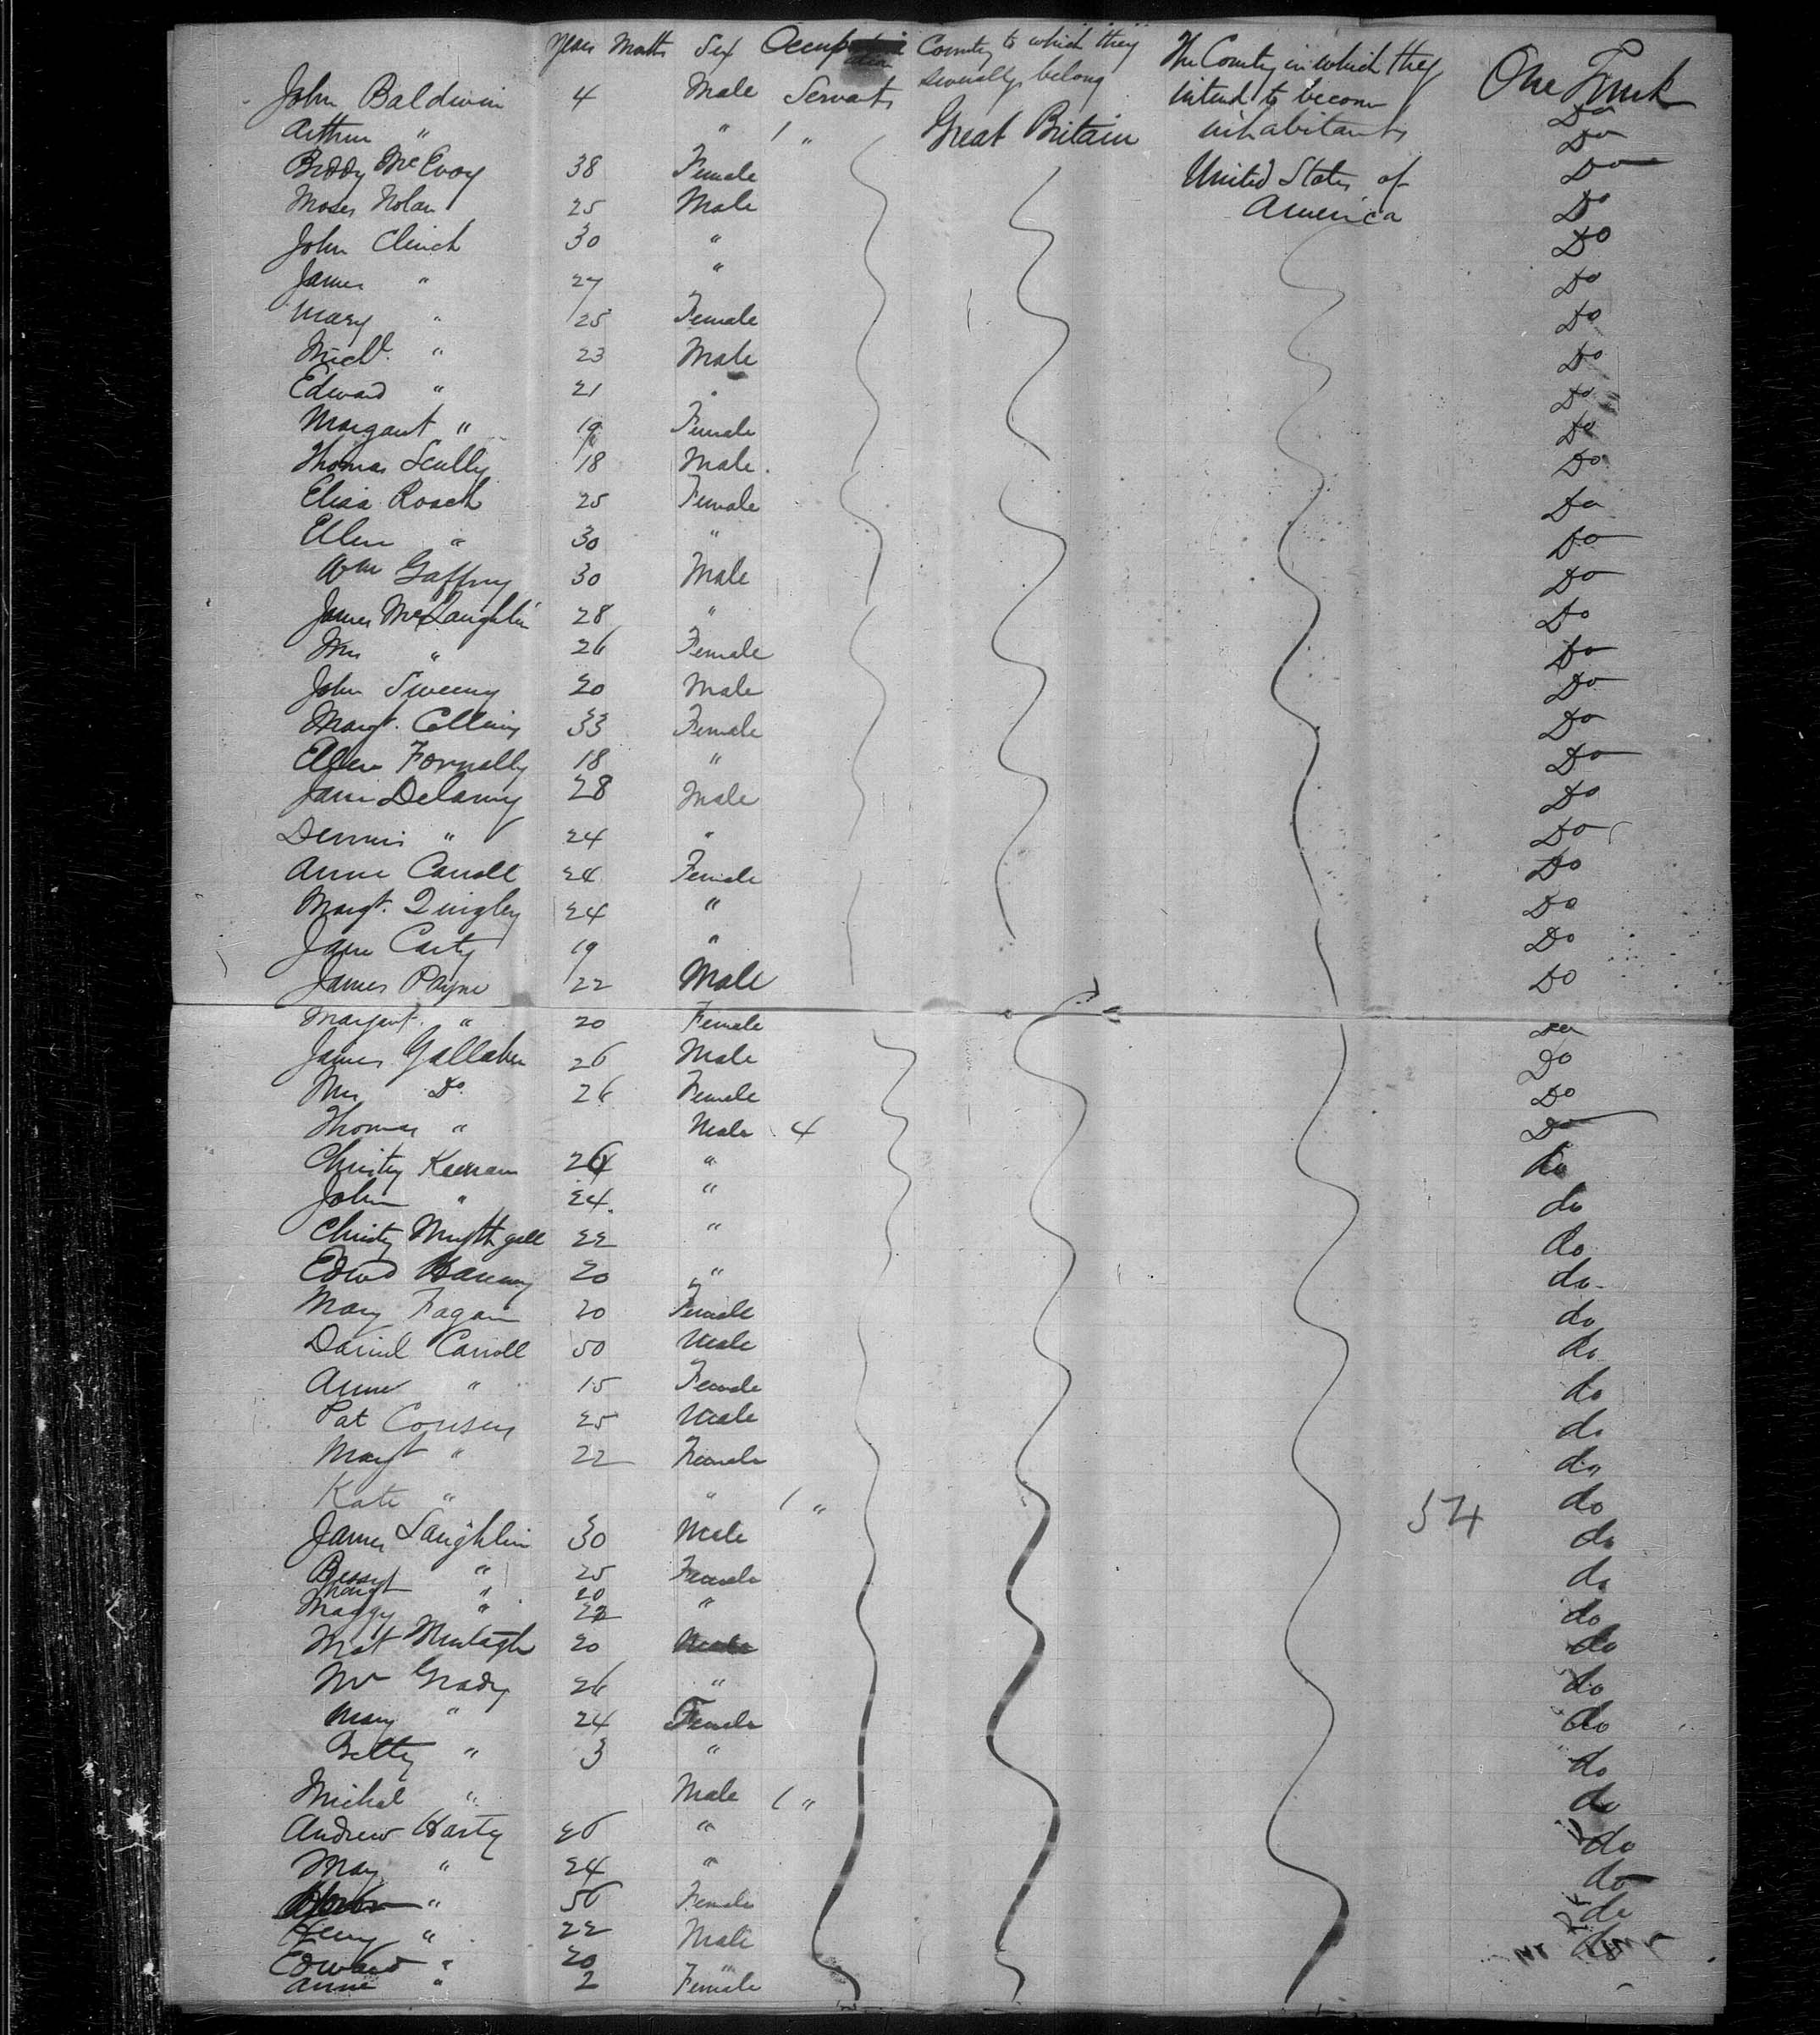 Years Months Sex Occupation Country to which they severally belong The Country in which they intend to become inhabitants One Trunk
John Baldwin 4 Male Servants Do
Arthur " " 1 " Great Britain Do
Biddy McEvoy 38 Female United States of America Do
Moses Nolan 25 Male Do
John Clinch 30 " Do
James " 27 " Do
Mary " 25 Female Do
Michl. " 23 Male Do
Edward " 21 " Do
Margaret " 19 Female Do
Thomas Scully 18 Male Do
Eliza Roach 25 Female Do
Ellen " 30 " Do
Wm Gaffny 30 Male Do
James McLaughlin 28 " Do
Mrs " 26 Female Do
John Sweeny 20 Male Do
Margt. Collins 33 Female Do
Ellen Fornally 18 " Do
Delamy 28 Male Do
Dennis " 24 " Do
Anne Carroll 24 Female Do
Margt. Quigley 24 " Do
Jane Carty 19 " Do
James Payne 22 Male Do
Margaret " 20 Female Do
James Gallaher 26 Male Do
Mrs Do. 26 Female Do
Thomas " Male 4 Do
Christy Keenan 26 " do
John " 24 " do
Christy 22 " do
Edwd 20 " do
Mary Fagan 20 Female do
Daniel Carroll 50 Male do
Anne " 15 Female do
Pat 25 Male do
Margt " 22 Female do
Kate " " 1 " 54 do
James Laughlin 30 Male do
Bessy " 25 Female do
Margt " 20
Maggy " 22 " do
Mat Murtagh 20 Male do
Mr Grady 26 " do
Mary " 24 Female do
Betty " 3 " do
Michal " Male 1 " do
Andrew Harty 26 " do
May " 24 " do
" 50 Female do
Henry " 22 Male do
Edward " 20 "
Anne " 2 Female